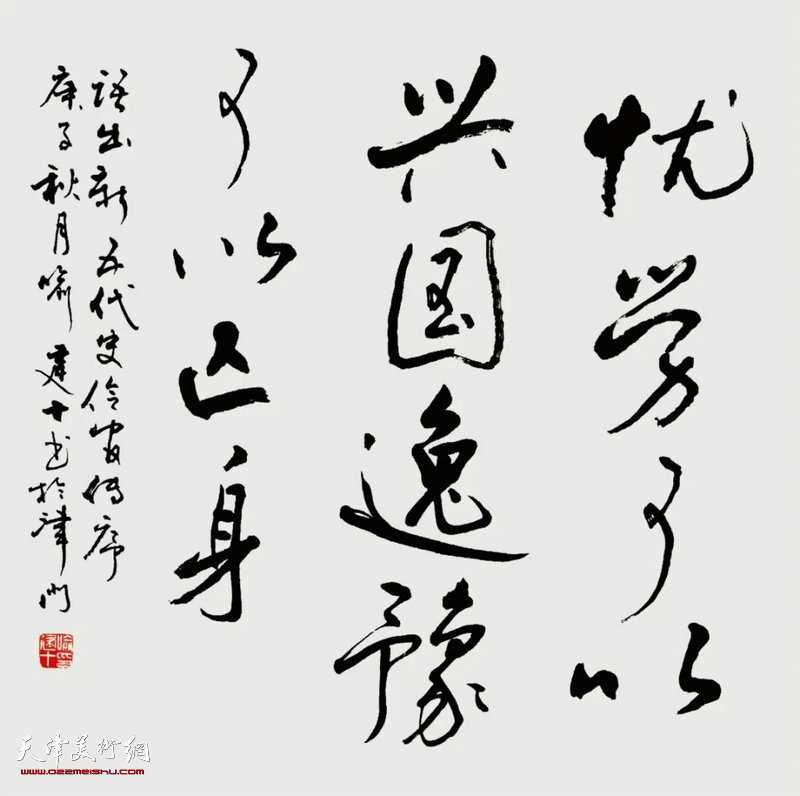 忧劳可以
兴国逸豫
可以亡身
语出新五代史伶官传序
庚子秋月喻建十书于津门
喻建十印
天津美术網
www.022meishu.com